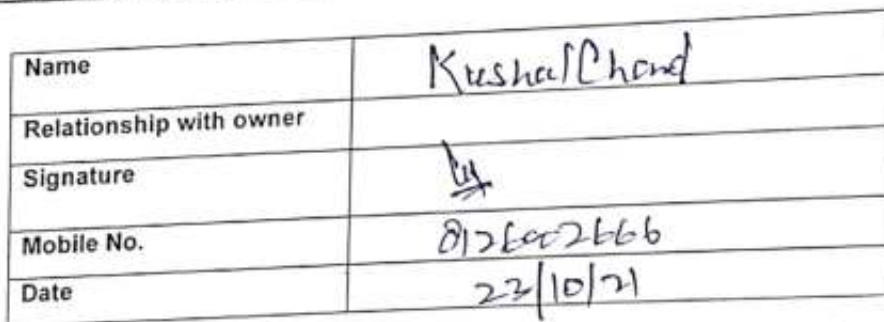 Name Kushal Chand
Relationship with owner
Signature
Mobile No. 8126002666
Date 23/10/21